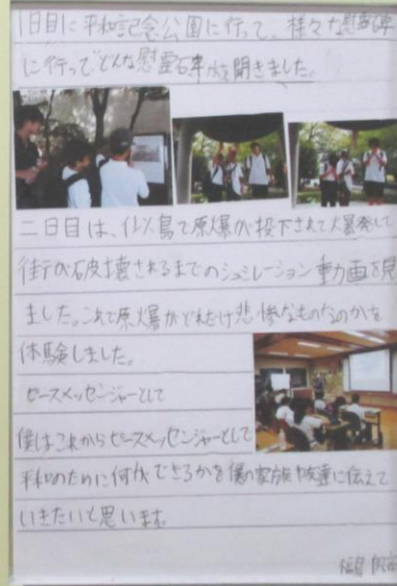 1日目に平和記念公園に行って、様々な慰霊碑
に行ってどんな慰霊碑かを聞きました。
二日目は、似島で原爆が投下されて爆発して
街が破壊されるまでのシュミレーション動画を見
ました。これで原爆がどれだけ悲惨なものなのかを
体験しました。
ピースメッセンジャーとして
僕はこれからピースメッセンジャーとして
平和のために何ができるかを僕の家族や友達に伝えて
いきたいと思います。